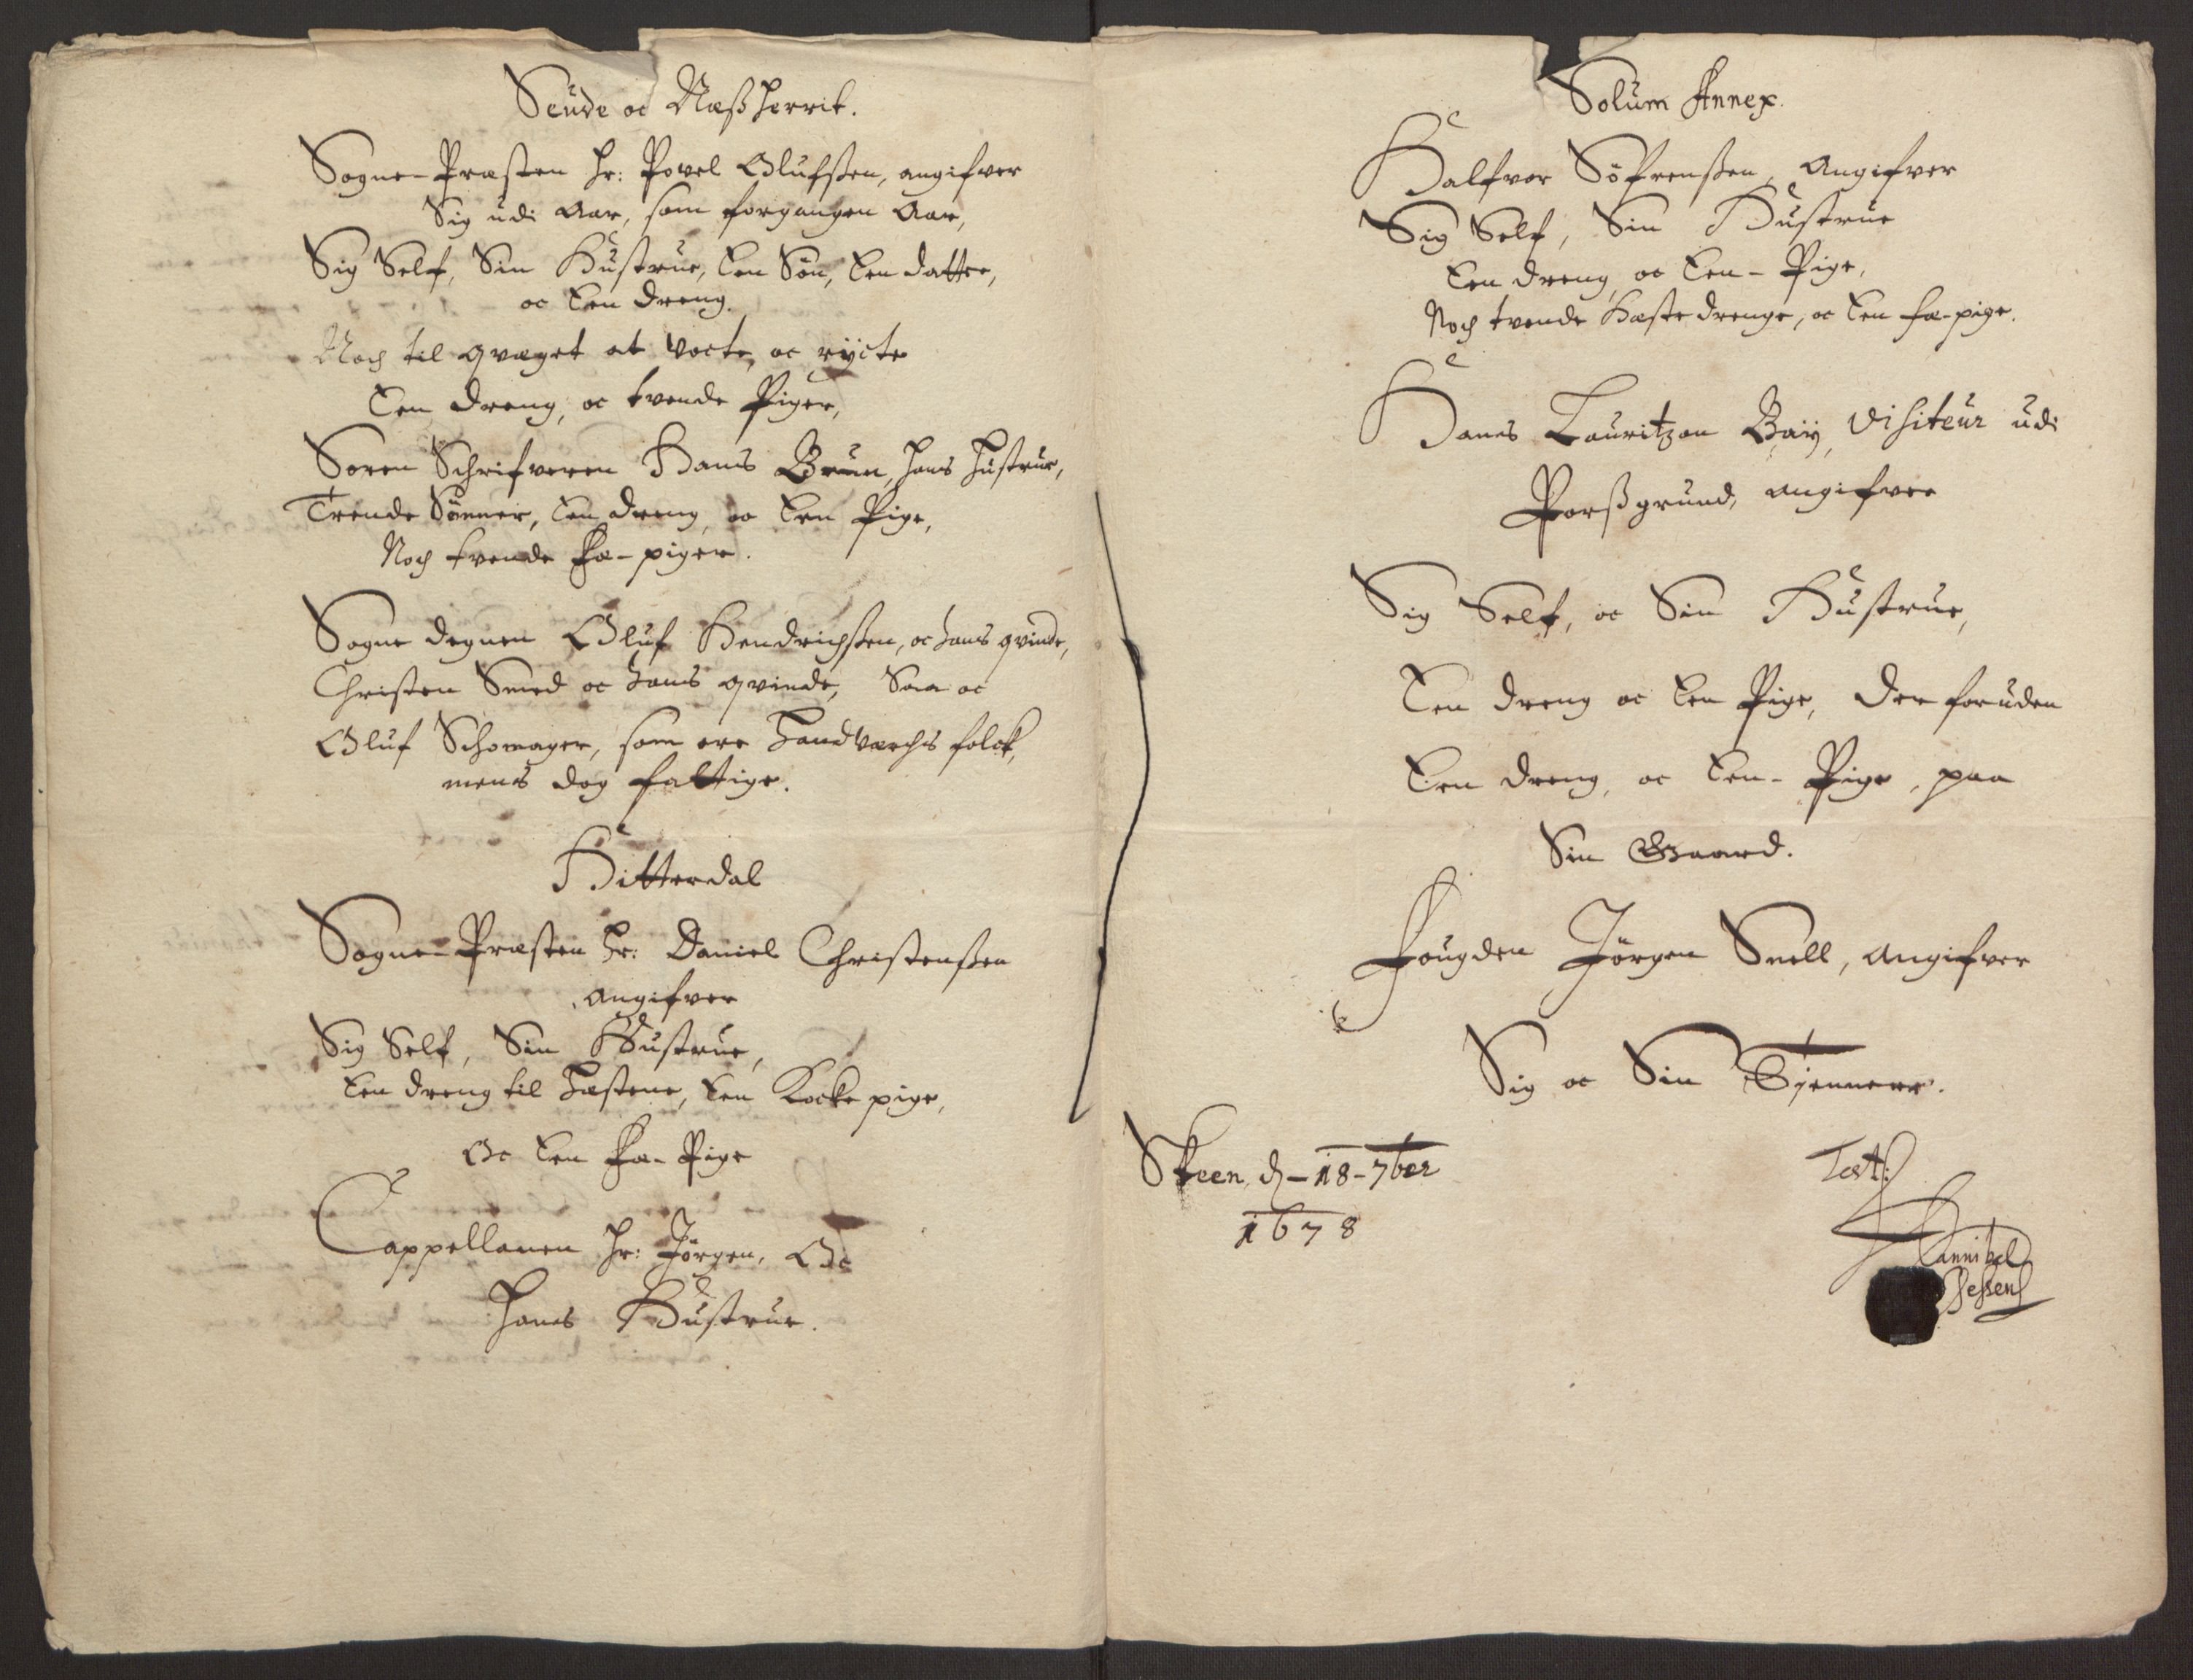 Seude oc Næß herrit.
Sogne-Præsten Hr: Povel Olufsßen, angifver
Sig udi Aar, som forgangen Aar,
Sig Self, Sin Hustrue, Een Søn, Een datter,
oc Een dreng.
Noch til qvæget at vocte, oc rÿcte
Een dreng, oc tvende Piger,
Soren Schrifveren Hans Bruun, hans hustrue,
Trende Sønner, Een dreng, oc Een Pige,
Noch tvende Fæ-piger.
Sogne degnen Oluf Hendrichßen, oc hans qvinde,
Christen Smed oc hans qvinde, Saa oc
Oluf Schomager, som ere Handværchs folck,
mens dog fattige.
Hitterdal
Sogne-Præsten Hr: Daniel Christenßen
angifver
Sig Self, Sin Hustrue,
Een dreng til Hæstene, Een Kocke pige,
Oc Een Fæ-Pige
Cappellanen Hr: Jørgen, Oc
Hans Hustrue.
Solum Annex.
Halfvor Søfrenßen, Angifver
Sig Self, Sin Hustrue
Een dreng, oc Een-Pige,
Noch tvende Hæste drenge, oc Een fæ-pige.
Hans Lauritzøn Baÿ, Visiteur udi
Porßgrund, angifver
Sig Self, oc Sin Hustrue,
Een dreng oc Een Pige, Der foruden
Een dreng, oc Een-Pige, paa
Sin Gaard.
Fougden Jørgen Snell, Angifver
Sig oc Sin Tjennere.
Skeen, d-18-7ber
1678
Test:
Hannibal
Jessen